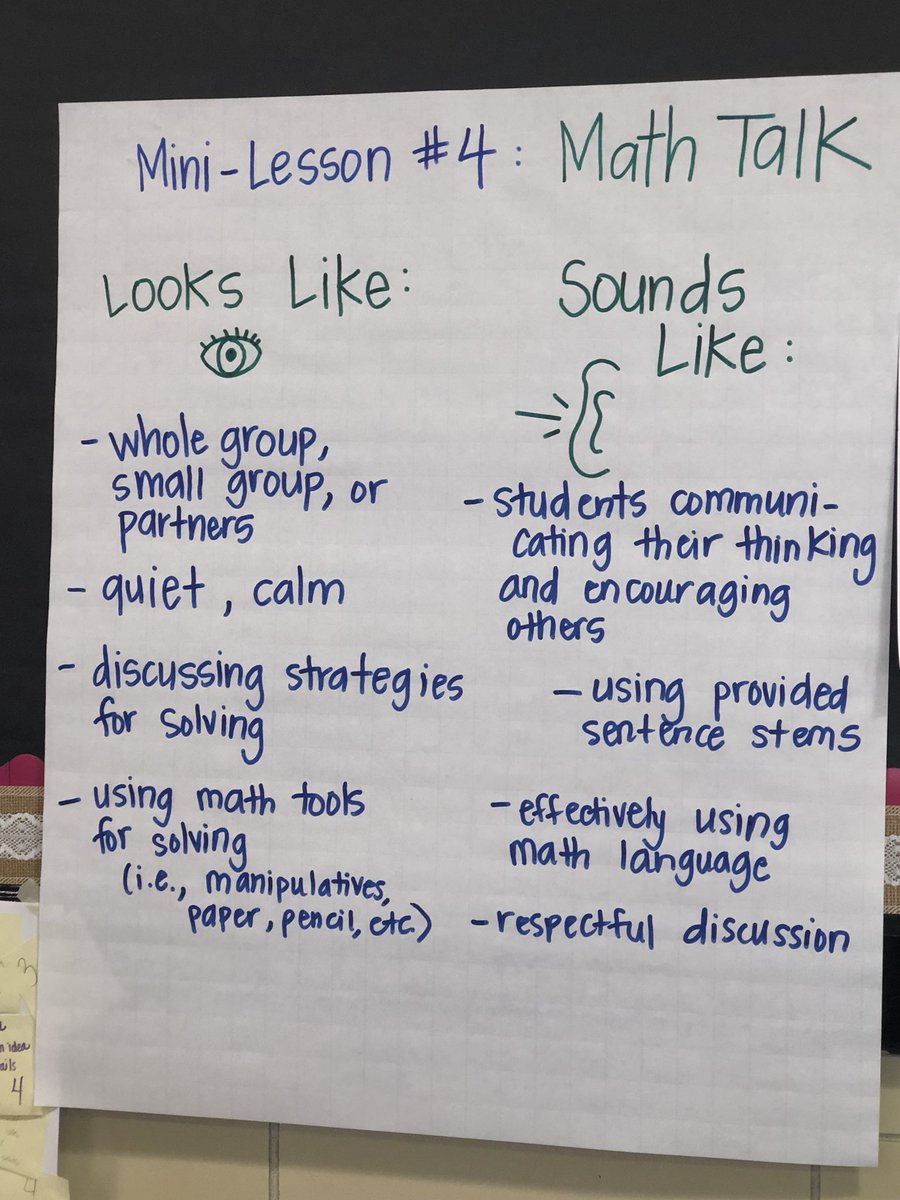 Mini-Lesson #4: Math Talk
Looks Like:
- whole group,
small group, or
partners
- quiet, calm
- discussing strategies
for solving
- using math tools
for solving
(i.e., manipulatives,
paper, pencil, etc.)
Sounds
Like:
- students communi-
cating their thinking
and encouraging
others
- using provided
sentence stems
- effectively using
math language
- respectful discussion
3
idea
4
4